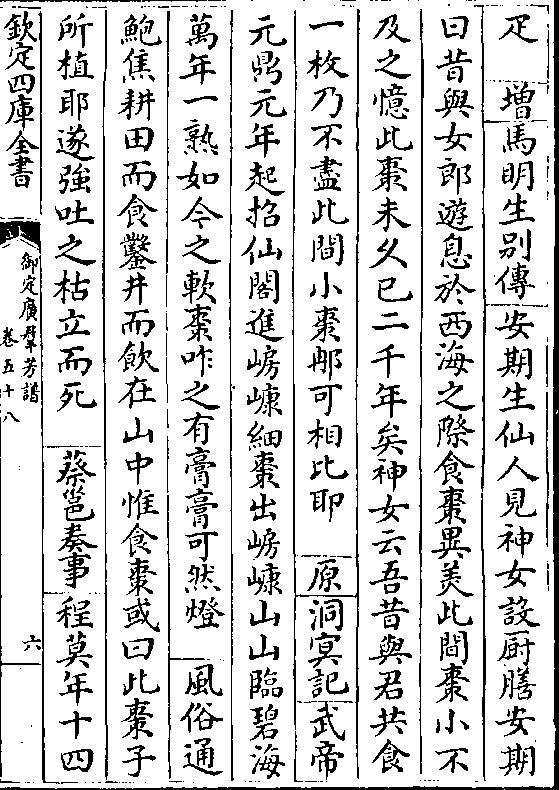 疋　增馬明生別傳安期生仙人見神女設厨膳安期
曰昔與女郎遊息於西海之際食棗異美此間棗小不
及之憶此棗未久已二千年矣神女云吾昔與君共食
一枚乃不盡此間小棗郍可相比耶　原洞冥記武帝
元鼎元年起招仙閣進㟍嵻細棗出㟍嵻山山臨碧海
萬年一熟如今之軟棗咋之有膏膏可然燈　風俗通
鮑焦耕田而食鑿井而飲在山中惟食棗或曰此棗子
所植耶遂強吐之枯立而死　蔡邕奏事程莫年十四
欽定四庫全書
御定廣羣芳譜
卷五十八
六